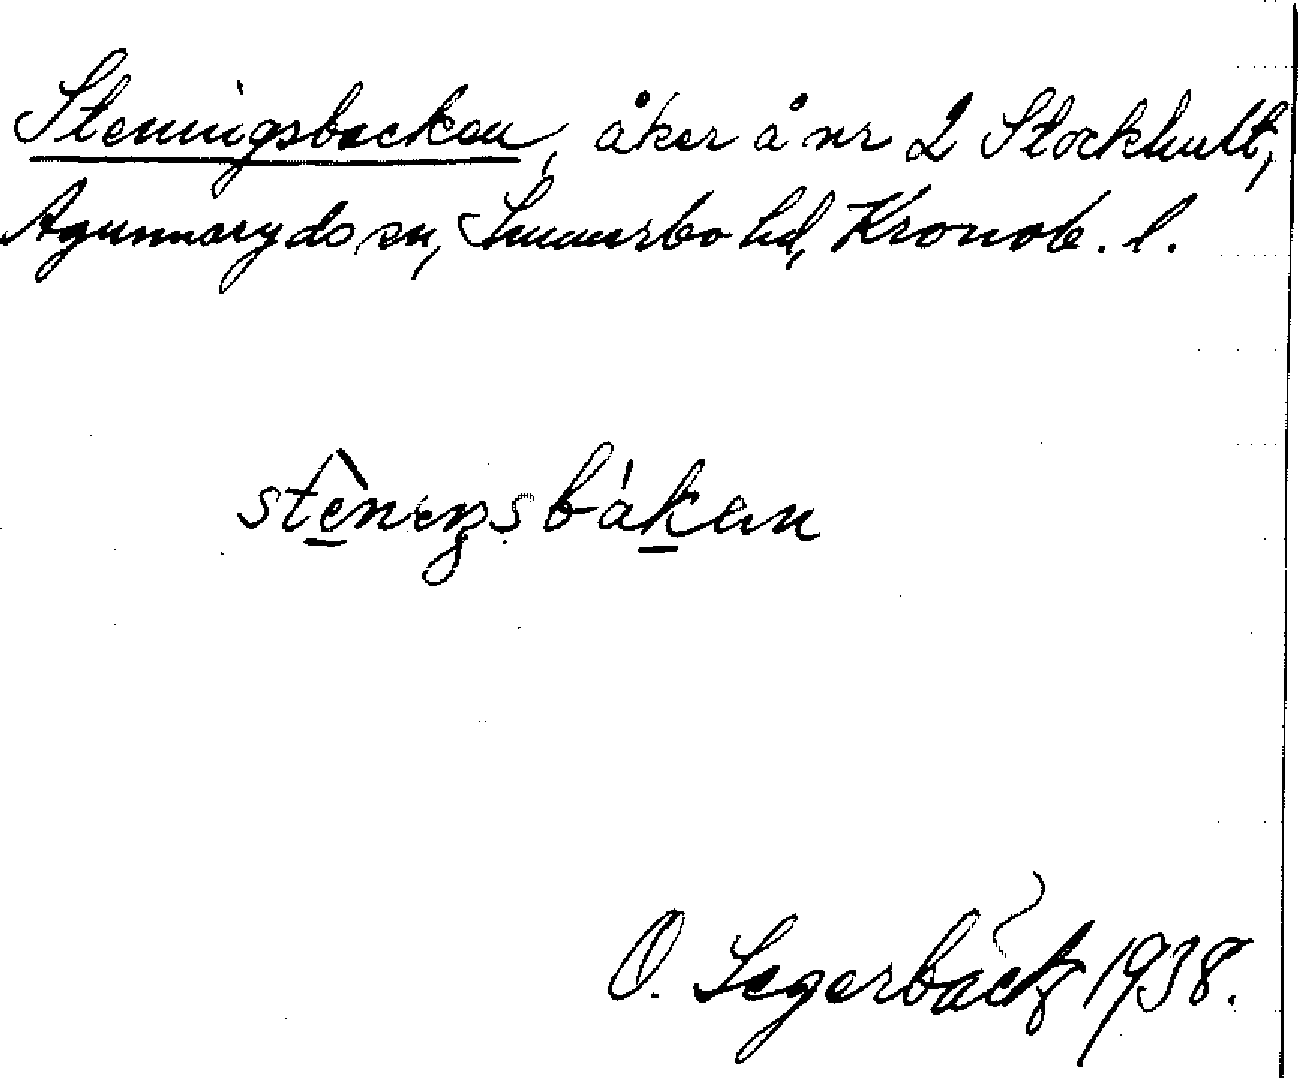 Steningsbacken, åker å nr 2 Stockhult,
Agunnaryds sn, Sunnerbo hd, Kronob. l.
stèneŋsbákan
O. Segerbäck 1938.